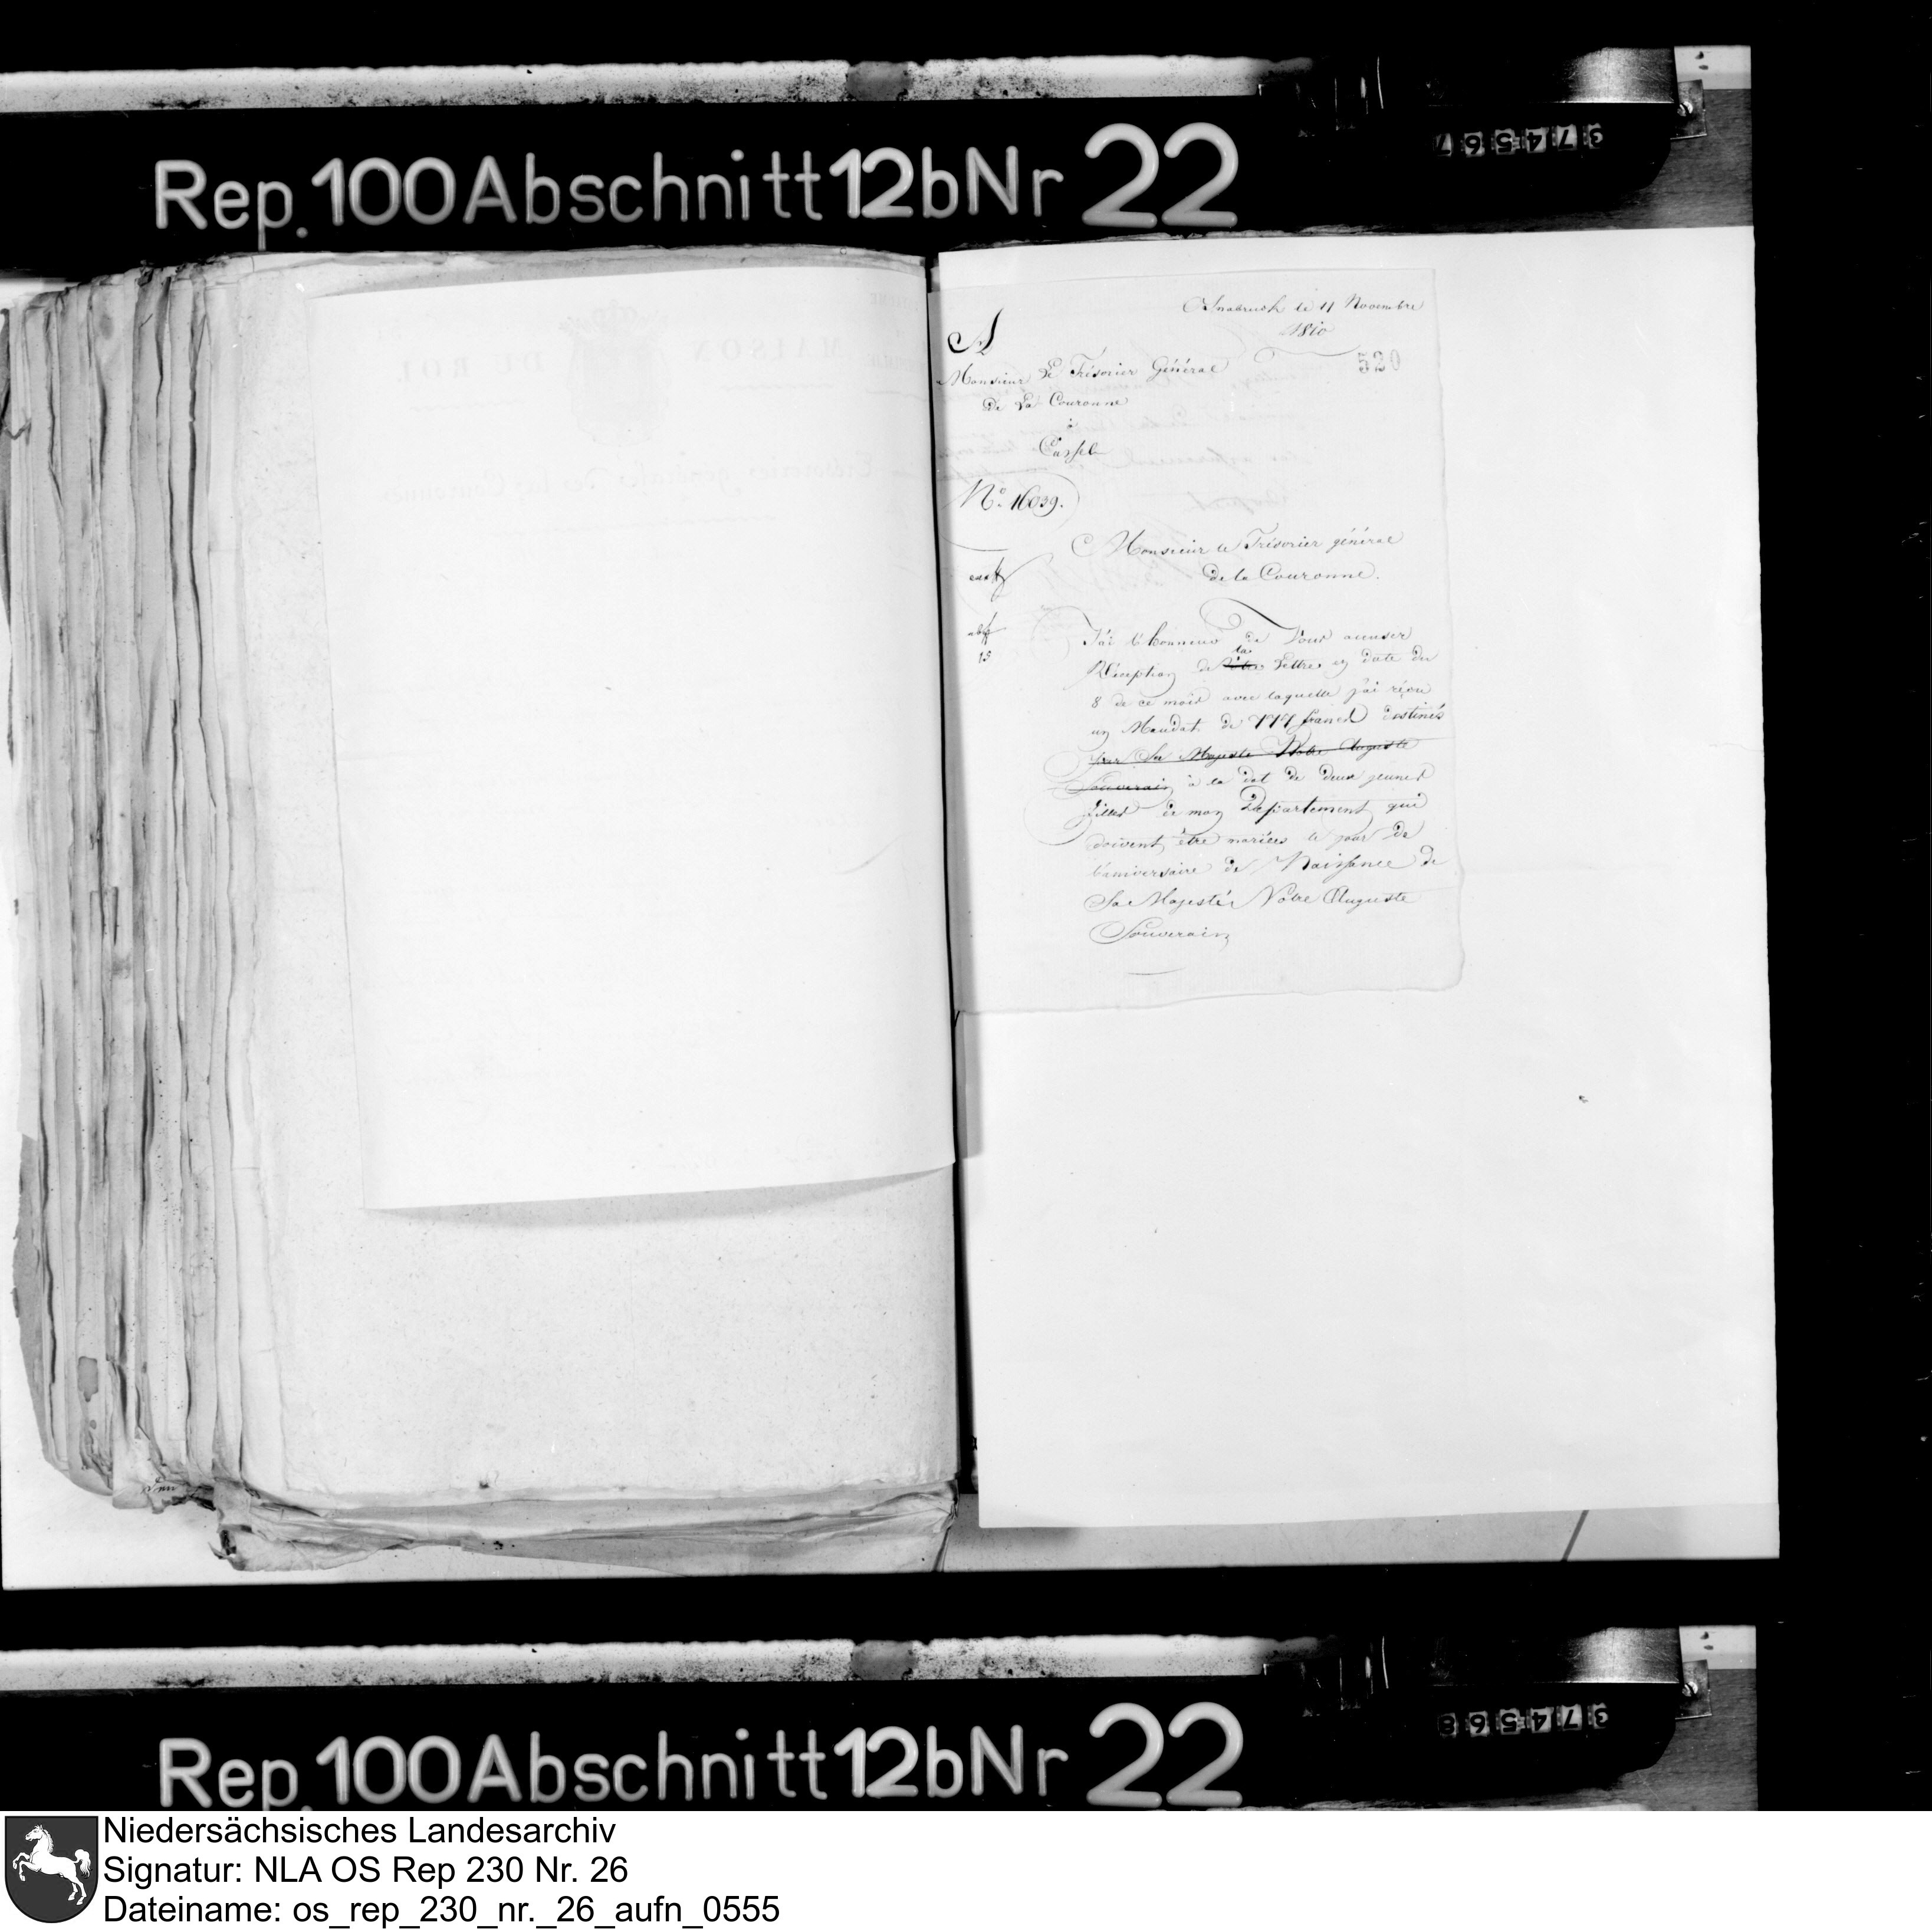 Rep. 100 Abschnitt 12b Nr 22
374567
Osnabruck le 11 Novembre
1810
520
A
Monsieur Le Trésorier Général
de La Couronne
à
Cassel
No. 16039.
Monsieur le Trésorier général
de la Couronne.
15
J'ai l'honneur de Vous accuser
Réception de la Lettre en date du
8 de ce mois avec laquelle j'ai reçu
un Mandat de 777 francs destinés
par Sa Majesté Notre Auguste
Souverain à la dot de deux jeunes
filles de mon Département qui
doivent être mariées le jour de
l'aniversaire de Naissance de
Sa Majesté Notre Auguste
Souverain
Rep. 100 Abschnitt 12b Nr 22
374568
Niedersächsisches Landesarchiv
Signatur: NLA OS Rep 230 Nr. 26
Dateiname: os_rep_230_nr._26_aufn_0555